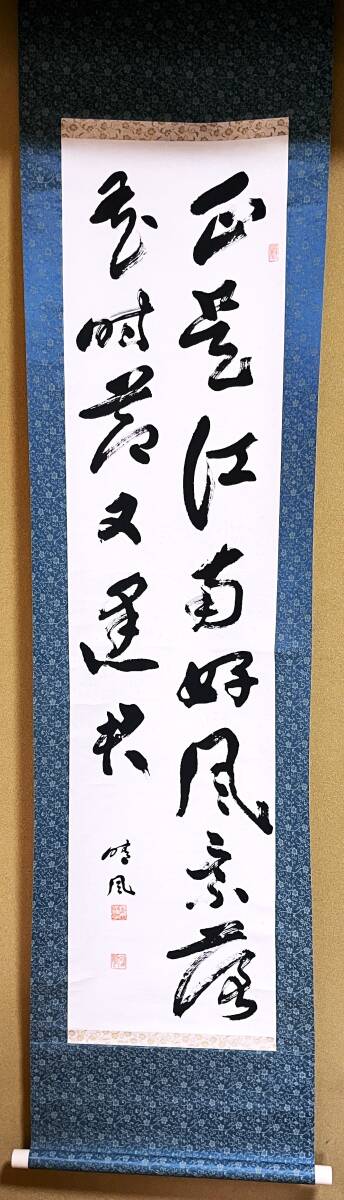 正是江南好風景落
花時節又逢君
晴風